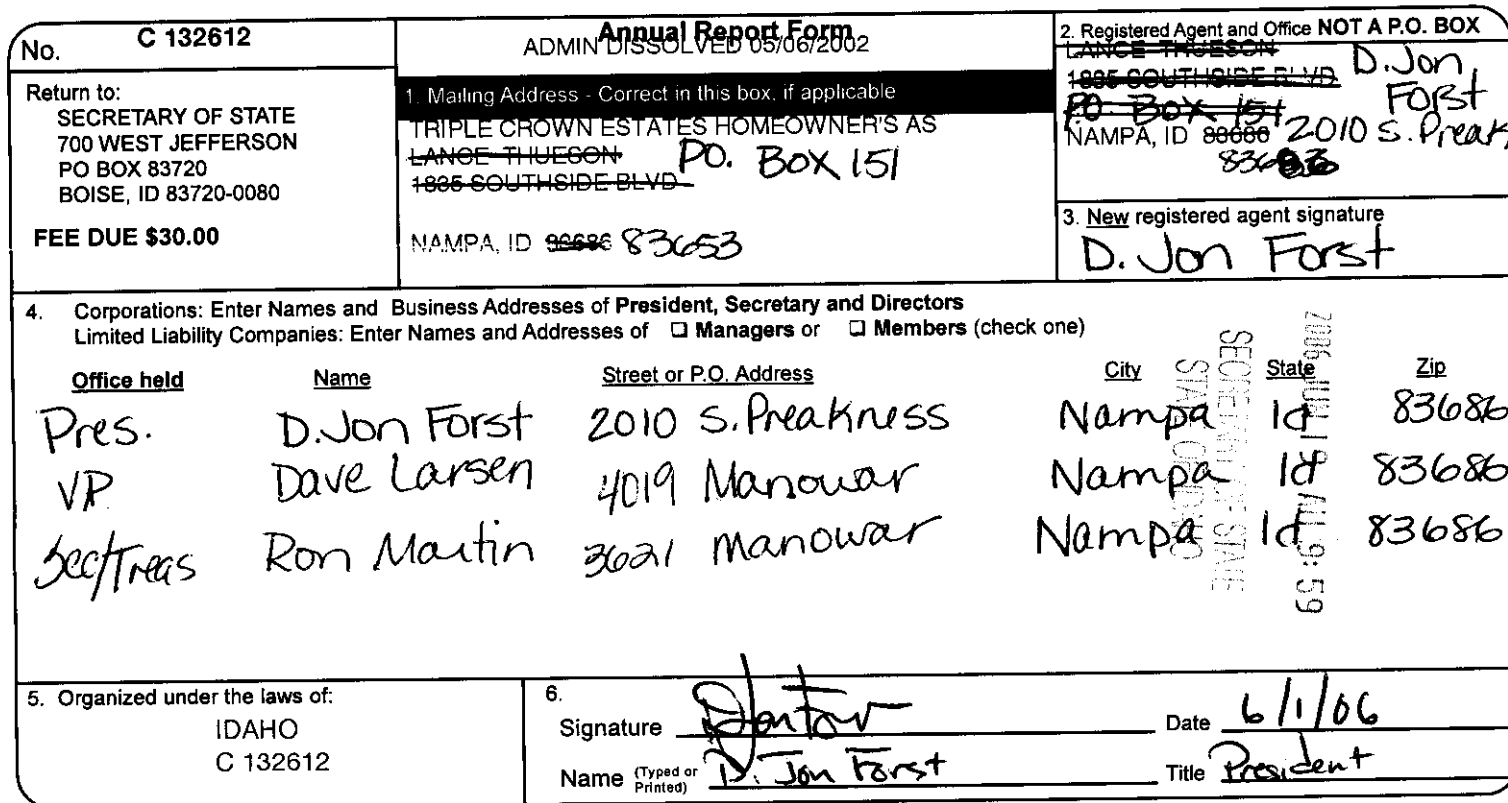 No. C 132612
Annual Report Form
ADMIN DISSOLVED 05/06/2002
Return to:
SECRETARY OF STATE
700 WEST JEFFERSON
PO BOX 83720
BOISE, ID 83720-0080
FEE DUE $30.00
1. Mailing Address - Correct in this box, if applicable
TRIPLE CROWN ESTATES HOMEOWNER'S AS
LANCE THUESON PO. BOX 151
1835 SOUTHSIDE BLVD
NAMPA, ID 83653
2. Registered Agent and Office NOT A P.O. BOX
LANCE THUESON D. Jon
1835 SOUTHSIDE BLVD Forst
PO Box 151
NAMPA, ID 83686 2010 S. Preak
3. New registered agent signature
D. Jon Forst
4. Corporations: Enter Names and Business Addresses of President, Secretary and Directors
Limited Liability Companies: Enter Names and Addresses of ❑ Managers or ❑ Members (check one)
Office held Name Street or P.O. Address City State Zip
Pres. D. Jon Forst 2010 S. Preakness Nampa Id 83686
VP Dave Larsen 4019 Manowar Nampa Id 83686
Sec/Treas Ron Martin 3621 Manowar Nampa Id 83686
2006 JUN 19 AM 9:59
SECRETARY OF STATE
STATE OF IDAHO
5. Organized under the laws of:
IDAHO
C 132612
6.
Signature
Date 6/1/06
Name (Typed or Printed) D. Jon Forst
Title President